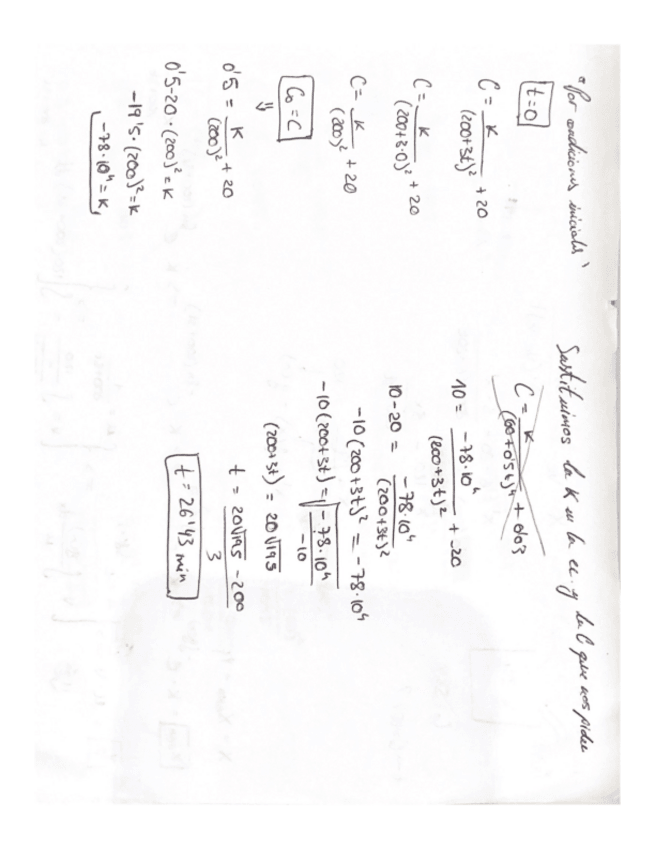 "Por condiciones iniciales"
t=0
C = K/(200+3t)² + 20
C = K/(200+3·0)² + 20
C = K/(200)² + 20
C₀ = C
⇓
0'5 = K/(200)² + 20
0'5-20·(200)² = K
-19'5·(200)² = K
-78·10⁴ = K
Sustituimos la K en la ec. y la C que nos piden
C = K/(60+0'5t)⁴ + 0'03
10 = -78·10⁴/(200+3t)² + 20
10-20 = -78·10⁴/(200+3t)²
-10(200+3t)² = -78·10⁴
-10(200+3t) = √(-78·10⁴/-10)
(200+3t) = 20√195
t = (20√195 - 200)/3
t = 26'43 min